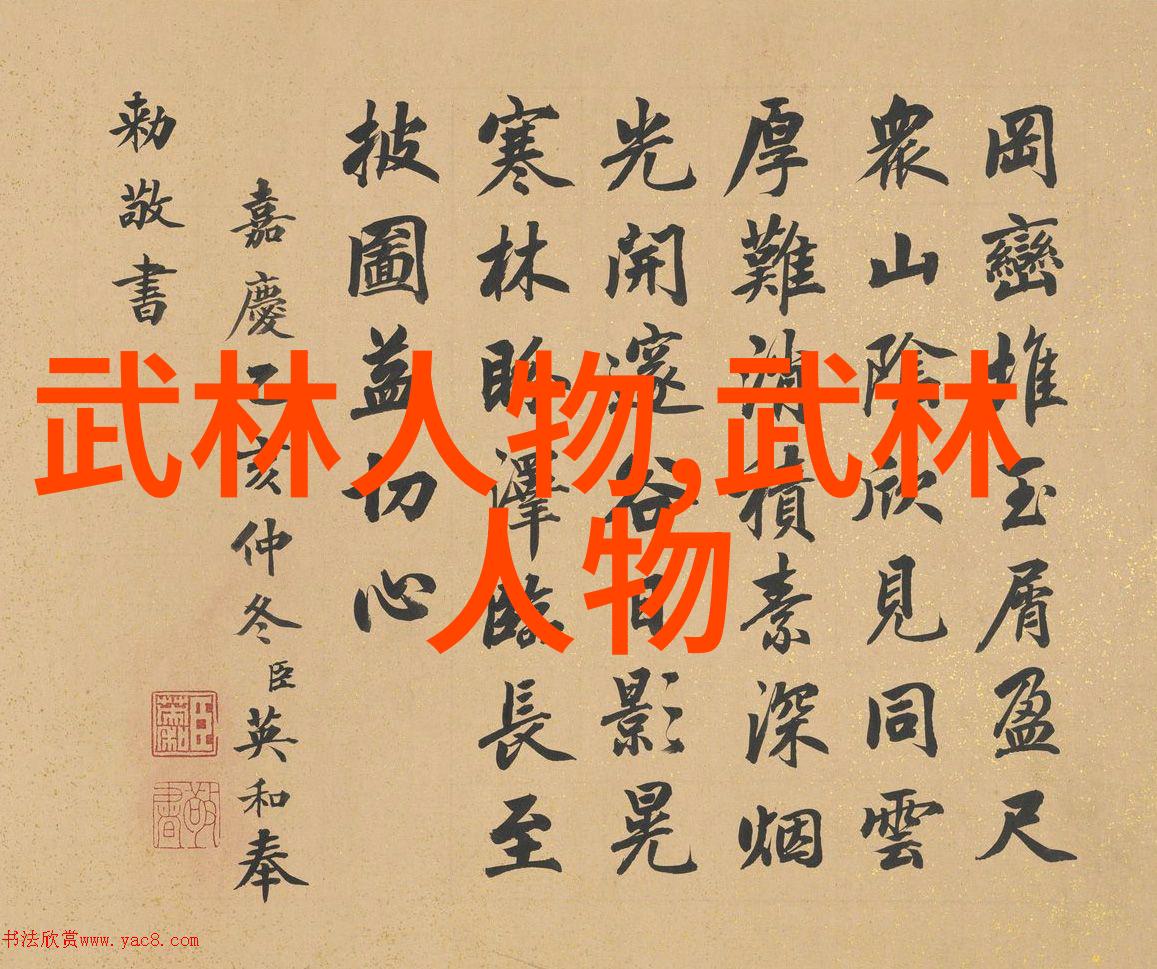 岡巒堆玉屑盈尺
衆山陰欣見同雲
厚難消積素深烟
光開邃谷日影晃
寒林眺澤臨長至
披圖益切心
嘉慶乙亥仲冬臣英和奉
勅敬書
敬書
武林人物,武林
人物
书法欣赏www.yac8.com